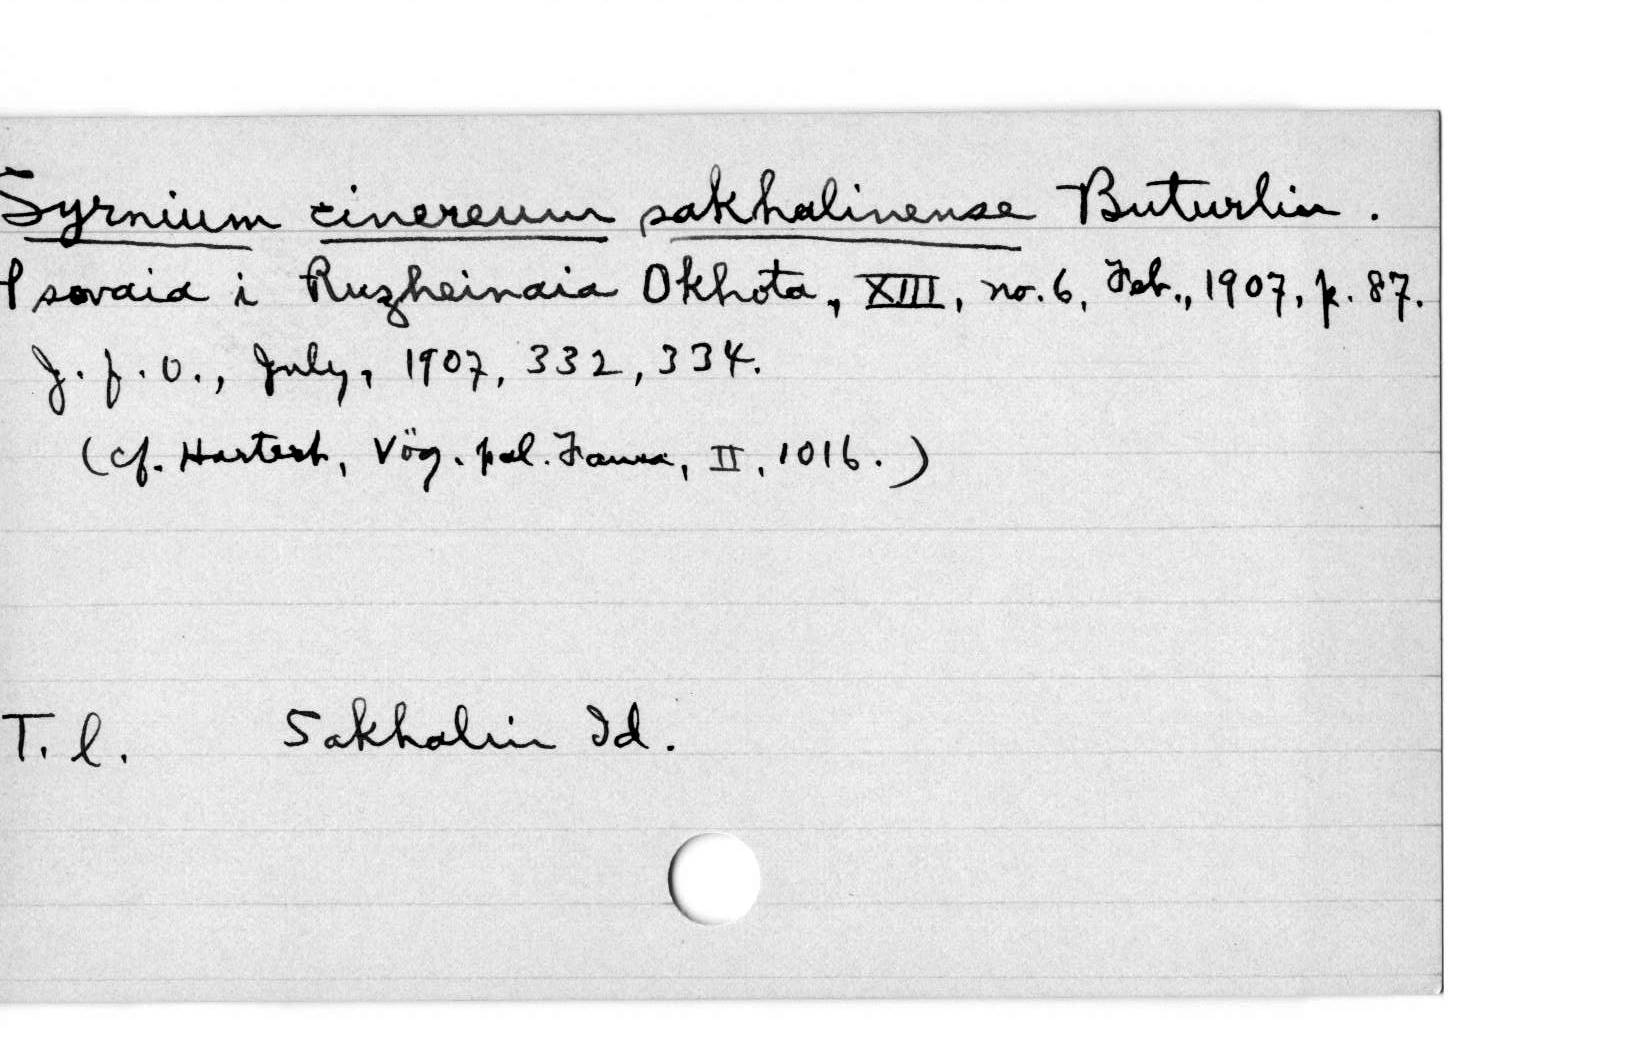 Syrnium cinereum sakhalinense Buturlin.
Psovaia i Ruzheinaia Okhota, XIII, no. 6, Feb., 1907, p. 87.
J. f. O., July, 1907, 332, 334.
(cf. Hartert, Vög. pal. Fauna, II, 1016.)
T. l. Sakhalin Id.